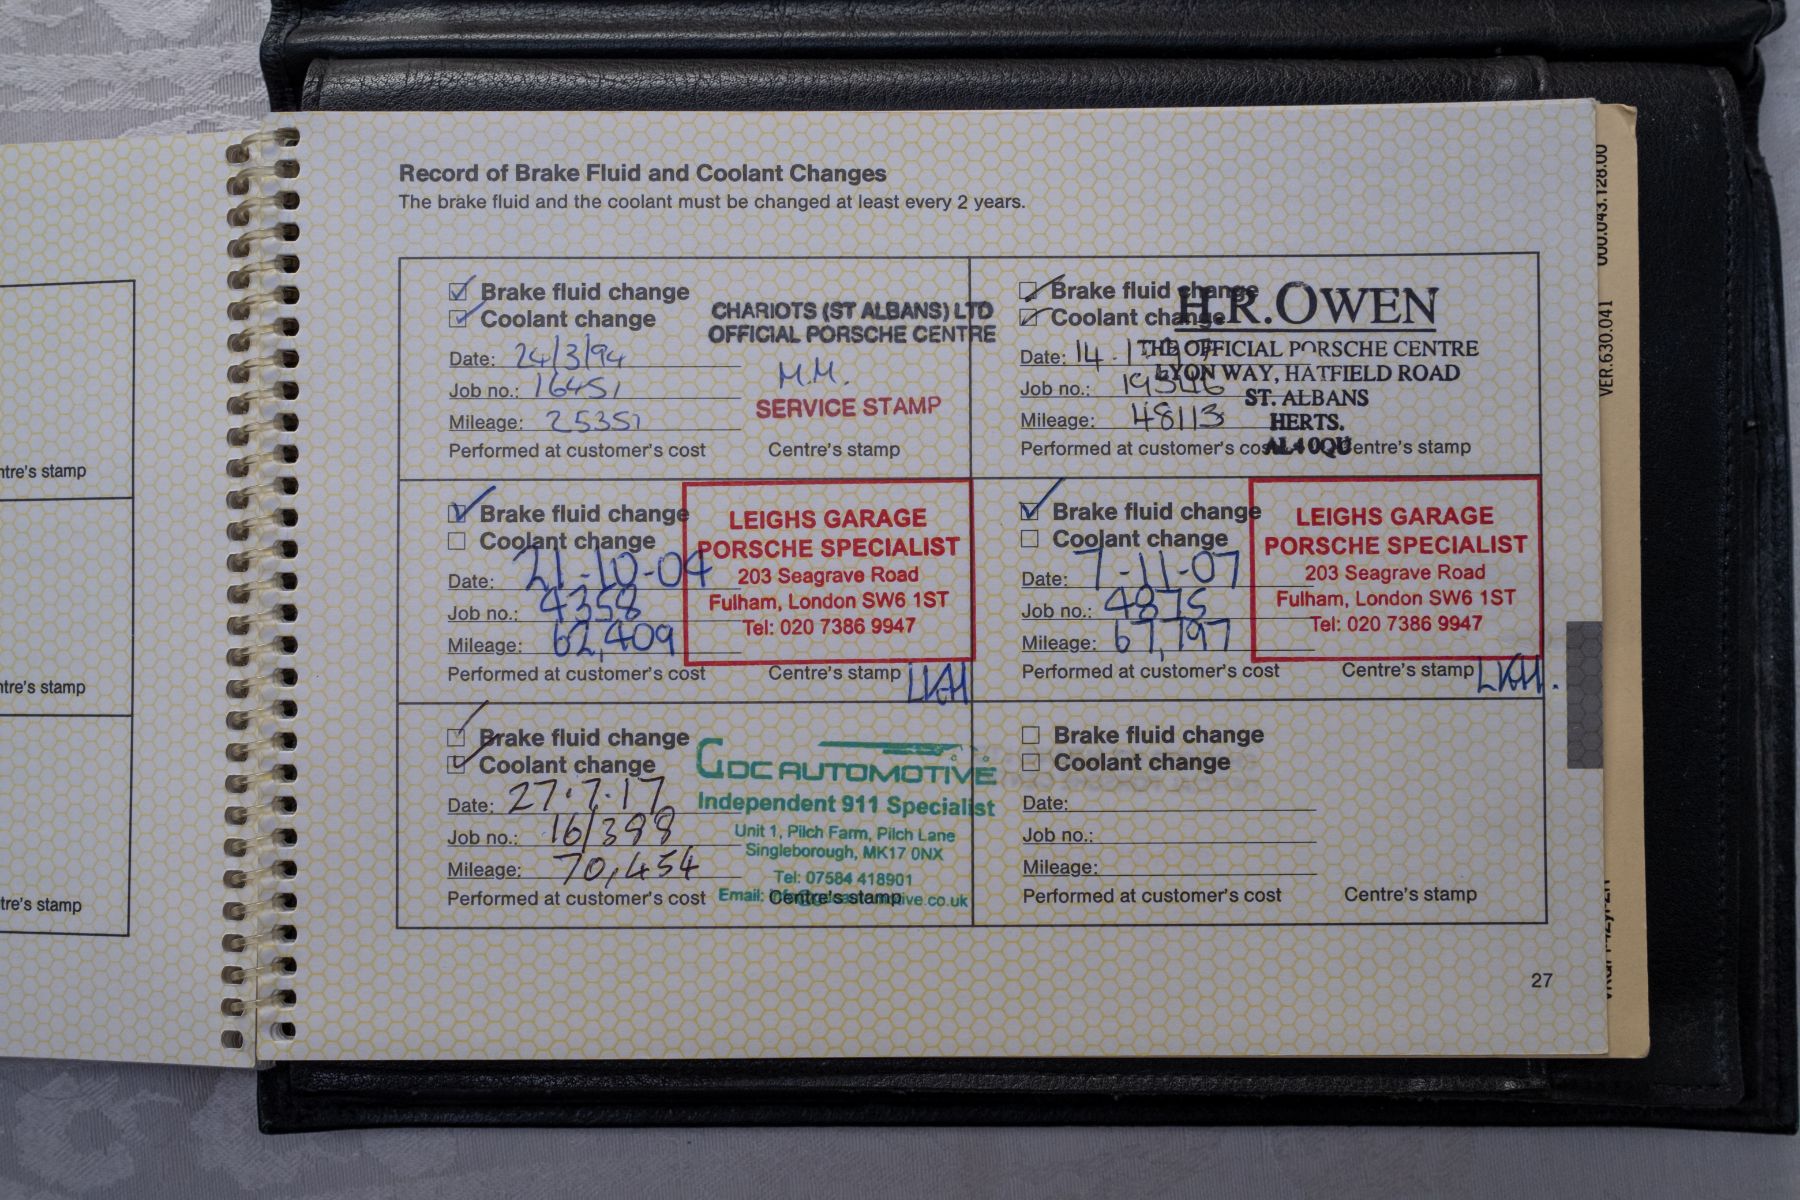 Record of Brake Fluid and Coolant Changes
The brake fluid and the coolant must be changed at least every 2 years.
Brake fluid change
Coolant change
Date: 24/3/94
Job no.: 16451
Mileage: 25351
Performed at customer's cost
CHARIOTS (ST ALBANS) LTD
OFFICIAL PORSCHE CENTRE
M.M.
SERVICE STAMP
Centre's stamp
Brake fluid change
Coolant change
Date: 14.
Job no.:
Mileage: 48113
Performed at customer's cost
H.R.OWEN
THE OFFICIAL PORSCHE CENTRE
LYON WAY, HATFIELD ROAD
ST. ALBANS
HERTS.
AL4 0QU
Centre's stamp
Brake fluid change
Coolant change
Date: 21-10-04
Job no.: 4358
Mileage: 62,409
Performed at customer's cost
LEIGHS GARAGE
PORSCHE SPECIALIST
203 Seagrave Road
Fulham, London SW6 1ST
Tel: 020 7386 9947
Centre's stamp
Brake fluid change
Coolant change
Date: 7-11-07
Job no.: 4875
Mileage: 67,797
Performed at customer's cost
LEIGHS GARAGE
PORSCHE SPECIALIST
203 Seagrave Road
Fulham, London SW6 1ST
Tel: 020 7386 9947
Centre's stamp
Brake fluid change
Coolant change
Date: 27.7.17
Job no.: 16/388
Mileage: 70,454
Performed at customer's cost
GDC AUTOMOTIVE
Independent 911 Specialist
Unit 1, Pilch Farm, Pilch Lane
Singleborough, MK17 0NX
Tel: 07584 418901
Email:
Centre's stamp
Brake fluid change
Coolant change
Date:
Job no.:
Mileage:
Performed at customer's cost
Centre's stamp
27
ntre's stamp
ntre's stamp
tre's stamp
VER.630.041
000.043.128.00